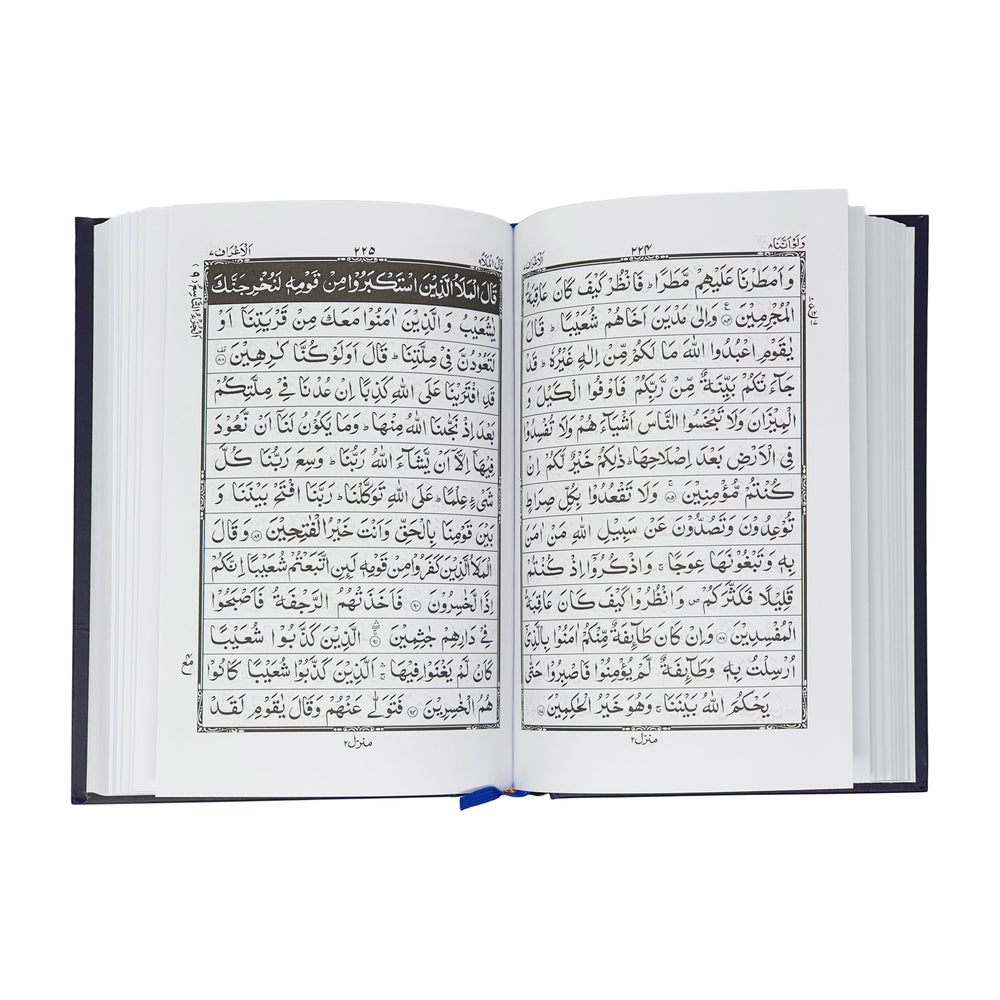 وَلَوْ اَنَّنَا ٨
٢٢٤
اَلْاَعْرَاف ٧
وَاَمْطَرْنَا عَلَيْهِمْ مَّطَرًا ؕ فَانْظُرْ كَيْفَ كَانَ عَاقِبَةُ
الْمُجْرِمِيْنَ ﴿۸۴﴾ وَاِلٰى مَدْيَنَ اَخَاهُمْ شُعَيْبًا ؕ قَالَ
يٰقَوْمِ اعْبُدُوا اللّٰهَ مَا لَكُمْ مِّنْ اِلٰهٍ غَيْرُهٗ ؕ قَدْ
جَآءَتْكُمْ بَيِّنَةٌ مِّنْ رَّبِّكُمْ فَاَوْفُوا الْكَيْلَ وَ
الْمِيْزَانَ وَلَا تَبْخَسُوا النَّاسَ اَشْيَآءَهُمْ وَلَا تُفْسِدُوْا
فِى الْاَرْضِ بَعْدَ اِصْلَاحِهَا ؕ ذٰلِكُمْ خَيْرٌ لَّكُمْ اِنْ
كُنْتُمْ مُّؤْمِنِيْنَ ﴿۸۵﴾ وَلَا تَقْعُدُوْا بِكُلِّ صِرَاطٍ
تُوْعِدُوْنَ وَتَصُدُّوْنَ عَنْ سَبِيْلِ اللّٰهِ مَنْ اٰمَنَ
بِهٖ وَتَبْغُوْنَهَا عِوَجًا ۚ وَاذْكُرُوْۤا اِذْ كُنْتُمْ
قَلِيْلًا فَكَثَّرَكُمْ ۪ وَانْظُرُوْا كَيْفَ كَانَ عَاقِبَةُ
الْمُفْسِدِيْنَ ﴿۸۶﴾ وَاِنْ كَانَ طَآئِفَةٌ مِّنْكُمْ اٰمَنُوْا بِالَّذِىْۤ
اُرْسِلْتُ بِهٖ وَطَآئِفَةٌ لَّمْ يُؤْمِنُوْا فَاصْبِرُوْا حَتّٰى
يَحْكُمَ اللّٰهُ بَيْنَنَا ۚ وَهُوَ خَيْرُ الْحٰكِمِيْنَ ﴿۸۷﴾
منزل ٢
قَالَ الْمَلَاُ ٩
٢٢٥
اَلْاَعْرَاف ٧
قَالَ الْمَلَاُ الَّذِيْنَ اسْتَكْبَرُوْا مِنْ قَوْمِهٖ لَنُخْرِجَنَّكَ
يٰشُعَيْبُ وَالَّذِيْنَ اٰمَنُوْا مَعَكَ مِنْ قَرْيَتِنَاۤ اَوْ
لَتَعُوْدُنَّ فِىْ مِلَّتِنَا ؕ قَالَ اَوَلَوْ كُنَّا كٰرِهِيْنَ ﴿۸۸﴾
قَدِ افْتَرَيْنَا عَلَى اللّٰهِ كَذِبًا اِنْ عُدْنَا فِىْ مِلَّتِكُمْ
بَعْدَ اِذْ نَجّٰنَا اللّٰهُ مِنْهَا ؕ وَمَا يَكُوْنُ لَنَاۤ اَنْ نَّعُوْدَ
فِيْهَاۤ اِلَّاۤ اَنْ يَّشَآءَ اللّٰهُ رَبُّنَا ؕ وَسِعَ رَبُّنَا كُلَّ
شَىْءٍ عِلْمًا ؕ عَلَى اللّٰهِ تَوَكَّلْنَا ؕ رَبَّنَا افْتَحْ بَيْنَنَا وَ
بَيْنَ قَوْمِنَا بِالْحَقِّ وَاَنْتَ خَيْرُ الْفٰتِحِيْنَ ﴿۸۹﴾ وَقَالَ
الْمَلَاُ الَّذِيْنَ كَفَرُوْا مِنْ قَوْمِهٖ لَئِنِ اتَّبَعْتُمْ شُعَيْبًا اِنَّكُمْ
اِذًا لَّخٰسِرُوْنَ ﴿۹۰﴾ فَاَخَذَتْهُمُ الرَّجْفَةُ فَاَصْبَحُوْا
فِىْ دَارِهِمْ جٰثِمِيْنَ ﴿۹۱﴾ الَّذِيْنَ كَذَّبُوْا شُعَيْبًا
كَاَنْ لَّمْ يَغْنَوْا فِيْهَا ۛۚ اَلَّذِيْنَ كَذَّبُوْا شُعَيْبًا كَانُوْا
هُمُ الْخٰسِرِيْنَ ﴿۹۲﴾ فَتَوَلّٰى عَنْهُمْ وَقَالَ يٰقَوْمِ لَقَدْ
منزل ٢